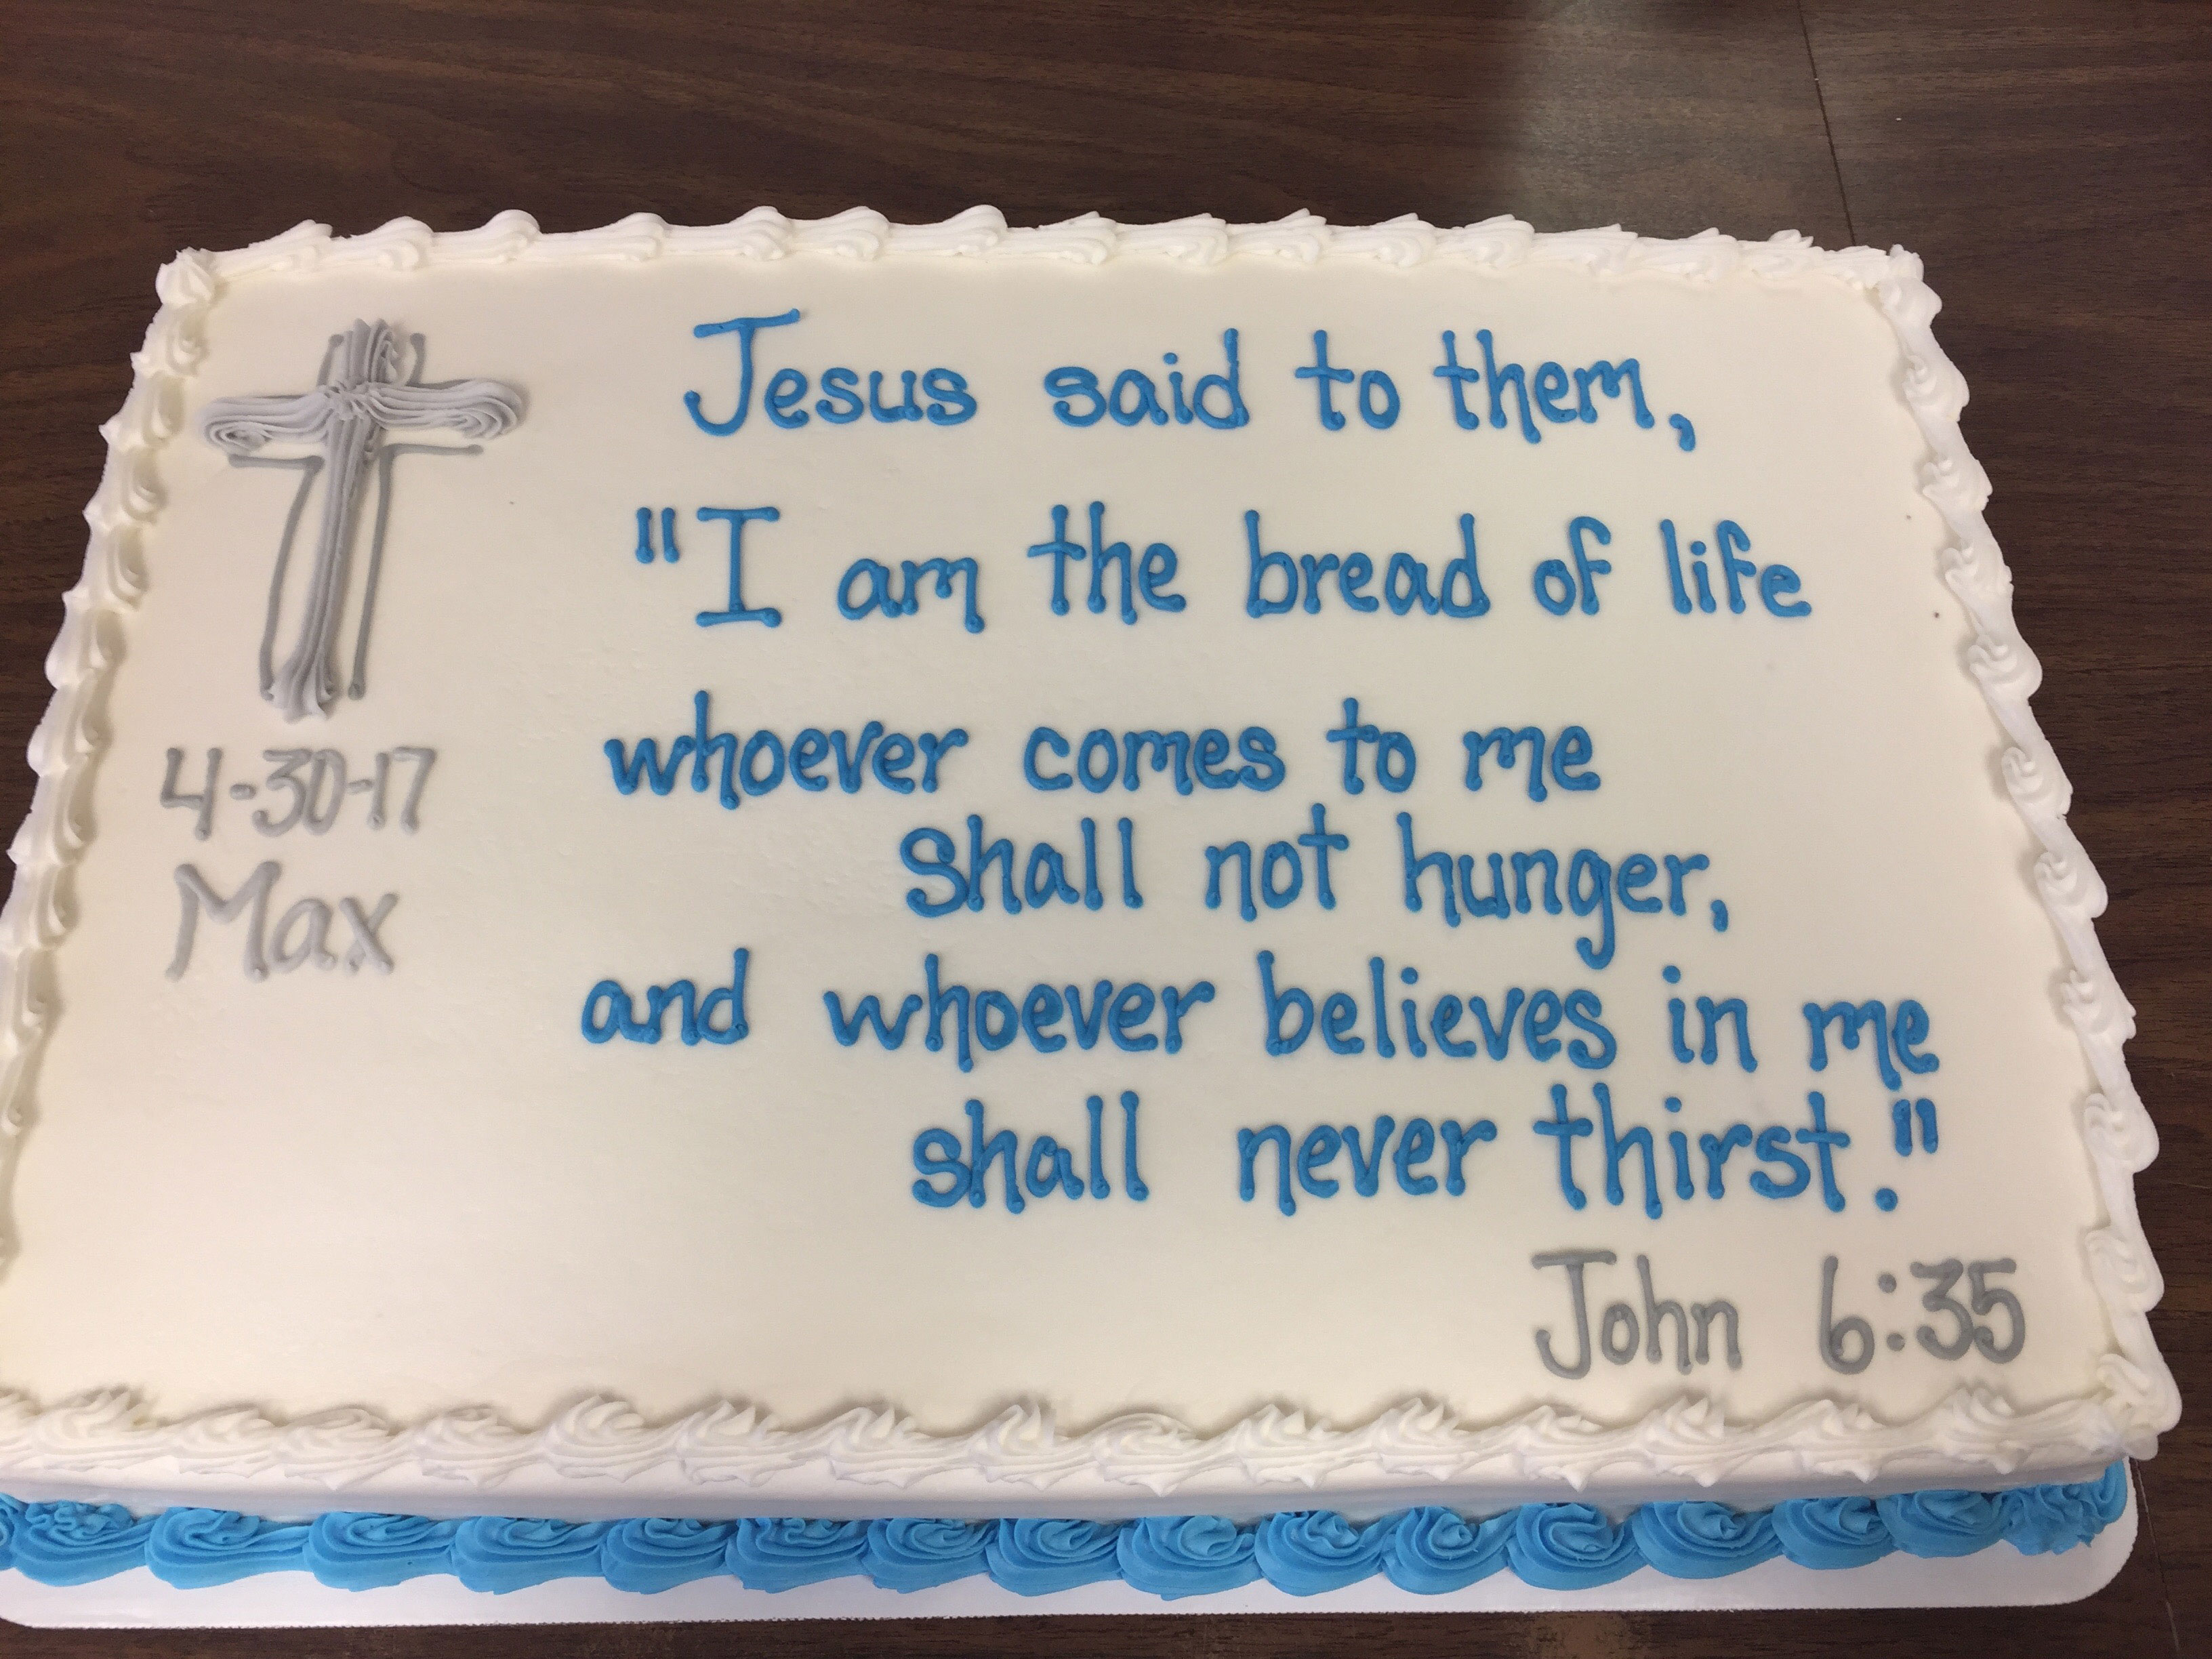 4-30-17
Max
Jesus said to them,
"I am the bread of life
whoever comes to me
shall not hunger,
and whoever believes in me
shall never thirst."
John 6:35